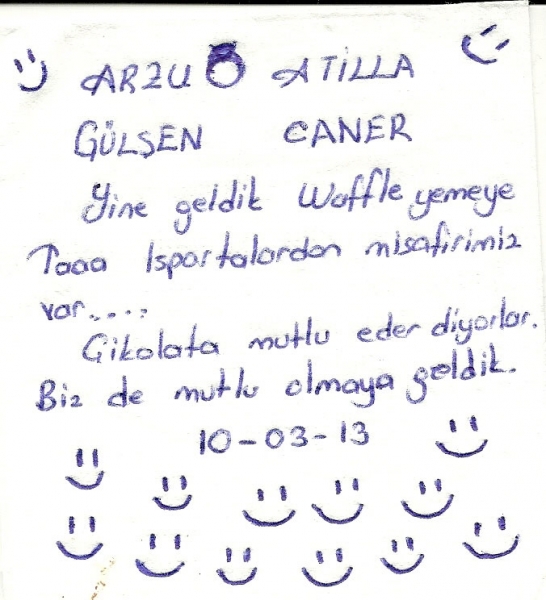 ARZU ATİLLA
GÜLŞEN CANER
Yine geldik Waffle yemeye
Taaa Ispartalardan misafirimiz
var....,
Çikolata mutlu eder diyorlar.
Biz de mutlu olmaya geldik.
10-03-13